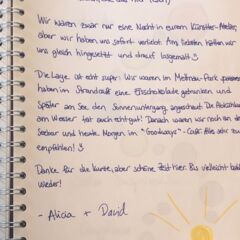 Wir waren zwar nur eine Nacht in eurem Künstler-Atelier,
aber wir haben uns sofort verliebt. Am liebsten hätten wir
uns gleich hingesetzt und drauf losgemalt :)
Die Lage ist echt super! Wir waren im Mettnau-Park spazieren,
haben im Strandcafé eine Eisschokolade getrunken und
später am See den Sonnenuntergang angeschaut. Die
am Wasser ist auch echt gut! Danach waren wir noch an der
Seebar und heute Morgen im "Goodways"-Café. Alles sehr zu
empfehlen! :)
Danke für die kurze, aber schöne Zeit hier. Bis vielleicht bald
wieder!
- Alicia + David